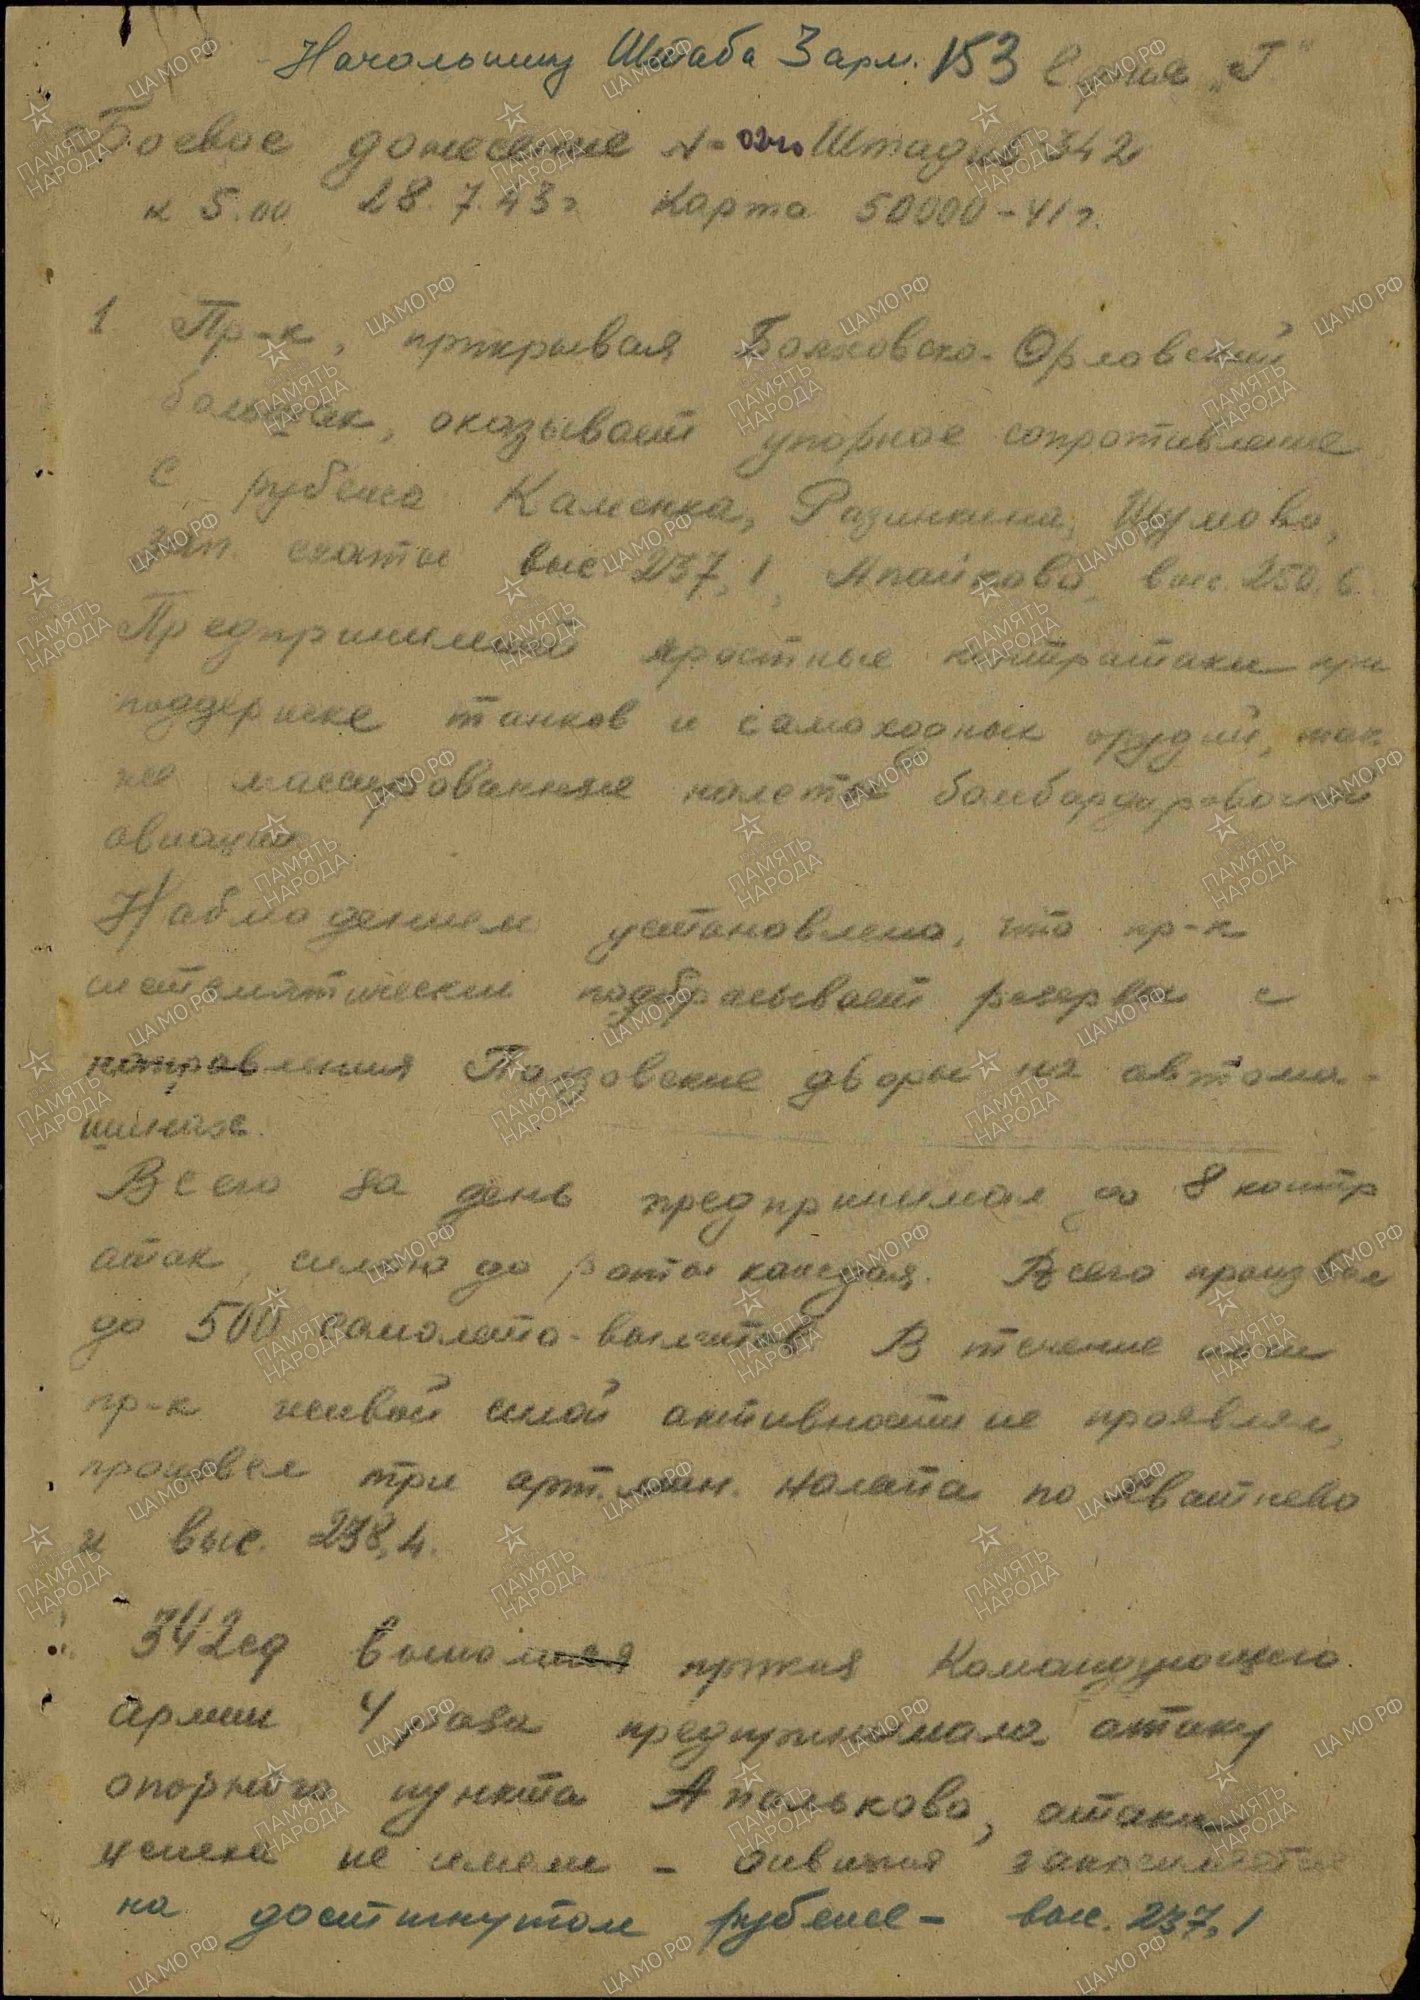 Начальнику Штаба 3 арм. 153 Серия "Г"
Боевое донесение № Штадив 342
к 5.00 28.7.43 г. Карта 50000-41 г.
1 Пр-к, прикрывая Болховско-Орловский
большак, оказывает упорное сопротивление
с рубежа Каменка, Разинкина, Шумово,
зап. скаты выс. 237,1, Апайково, выс. 250.6
Предпринимая яростные контратаки при
поддержке танков и самоходных орудий, так
же массированные налеты бомбардировочной
авиации.
Наблюдением установлено, что пр-к
систематически подбрасывает резервы с
направления Палзовские дворы на автома-
шинах.
Всего за день предпринимал до 8 контр
атак, силою до роты каждая. Всего произвел
до 500 самолето-вылетов. В течение ночи
пр-к живой силой активности не проявлял,
произвел три арт. мин. налета по Хватнево
и выс. 238,4.
342 сд выполняя приказ Командующего
армии 4 раза предпринимала атаку
опорного пункта Апальково, атаки
успеха не имели - дивизия
на достигнутом рубеже - выс. 237,1
ЦАМО РФ
ПАМЯТЬ НАРОДА